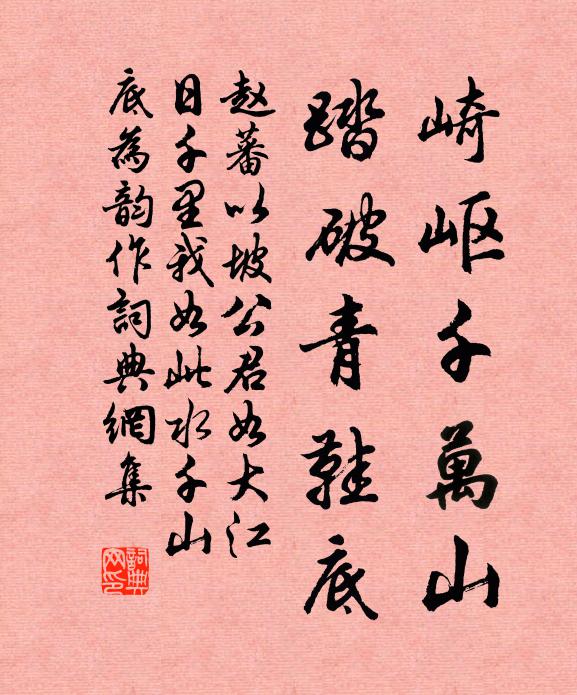 崎岖千萬山
踏破青鞋底
赵蕃以坡公君如大江
日千里我如此水千山
底為韵作詞典網集
詞典网印